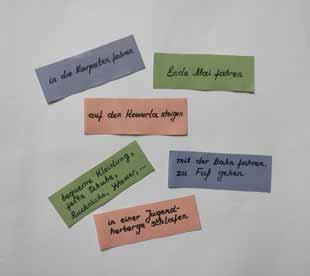 in die Karpaten fahren
Ende Mai fahren
auf den Howerla steigen
bequeme Kleidung,
feste Schuhe,
Rucksäcke, Wasser, ...
mit der Bahn fahren,
zu Fuß gehen
in einer Jugend-
herberge schlafen